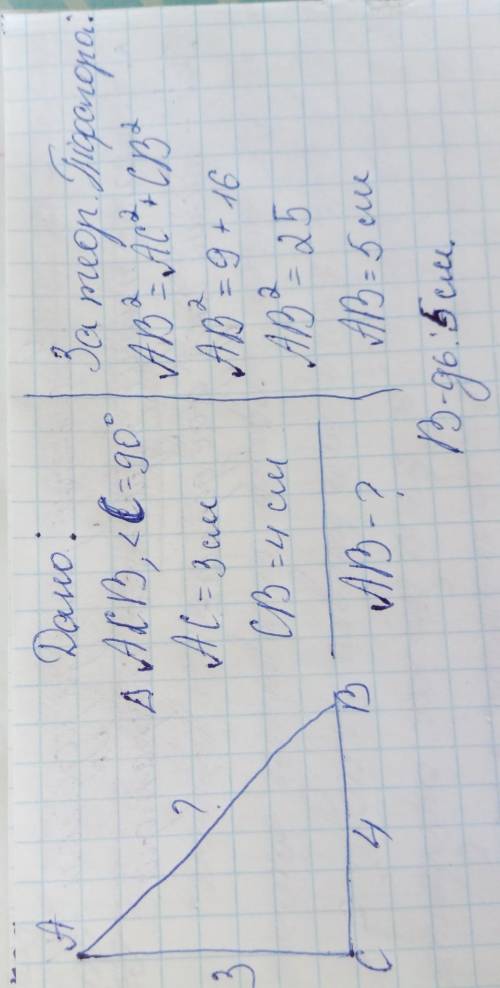 A
3
?
C
4
B
Дано:
Δ ACB, <C=90°
AC = 3 см
CB = 4 см
AB - ?
За теор. Піфагора:
AB² = AC² + CB²
AB² = 9 + 16
AB² = 25
AB = 5 см
В-дь: 5 см.